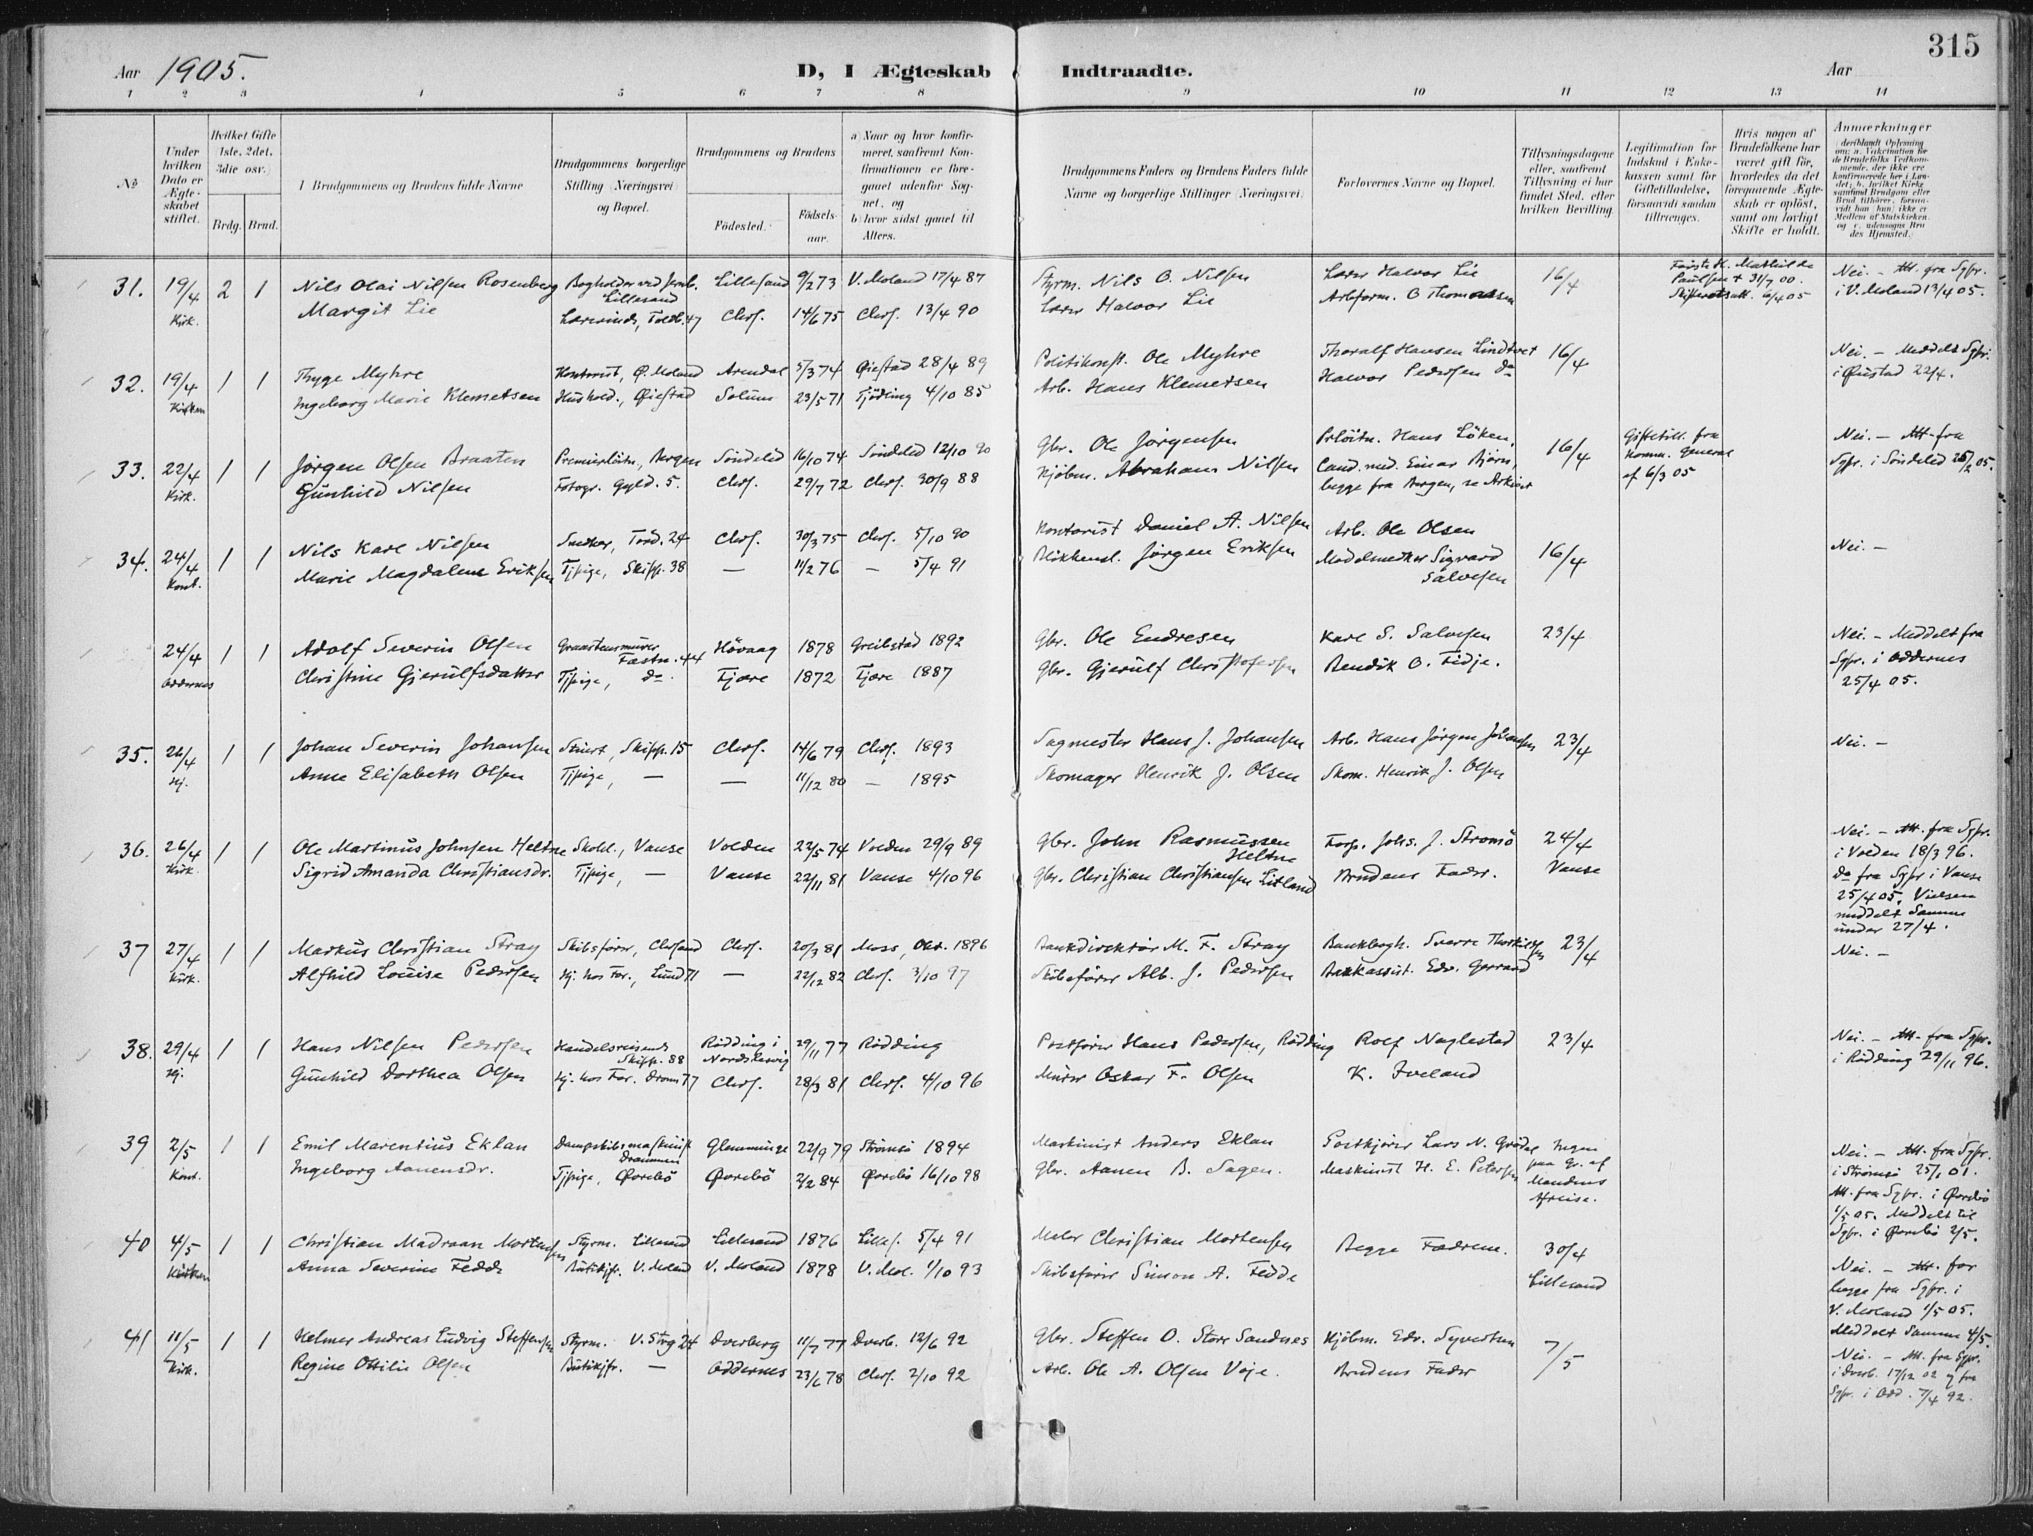 315
Aar 1905. D, I Ægteskab Indtraadte. Aar
1 2 3 4 5 6 7 8 9 10 11 12 13 14
No
Under hvilken Dato er Ægteskabet stiftet.
Hvilket Gifte 1ste, 2det, 3die osv.)
Brdg. Brud.
1 Brudgommens og Brudens fulde Navne
Brudgommens borgerlige Stilling (Næringsvei) og Bopæl.
Brudgommens og Brudens
Födested.
Födsels-aar.
a) Naar og hvor konfirmeret, saafremt Konfirmationen er foregaaet udenfor Sognet, og
b) hvor sidst gaaet til Alters.
Brudgommens Faders og Brudens Faders fulde Navne og borgerlige Stillinger (Næringsvei).
Forlovernes Navne og Bopæl.
Tillysningsdagene eller, saafremt Tillysning ei har fundet Sted, efter hvilken Bevilling.
Legitimation for Indskud i Enkekassen samt for Giftetilladelse, forsaavidt saadan tiltrænges.
Hvis nogen af Brudefolkene har været gift för, hvorledes da det foregaaende Ægteskab er oplöst, samt om lovligt Skifte er holdt.
Anmærkninger
31. 19/4 Kirk. 2 1 Nils Olai Nilsen Rosenberg Bogholder ved Jernb. Lillesand Lillesand 9/2 73 V. Moland 17/4 87 Styrm. Nils O. Nilsen Lærer Halvor Lie 16/4 Nei. – Att. fra Sgpr.
Margit Lie Chrs. 14/6 75 Chrs. 13/4 90 Lærer Halvor Lie Arbform. O Thomassen i V. Moland 13/4 05.
Paulsen + 31/7 00.
32. 19/4 Kirken 1 1 Thyge Myhre Kontorist, Ø. Moland Arendal 5/3 74 Øiestad 28/4 89 Politikonst. Ole Myhre Thoralf Hansen Lindtvet 16/4 Nei. – Meddelt Sgpr.
Ingeborg Marie Klemetsen Hushold., Øiestad Solum 23/5 71 Tjödling 4/10 85 Arb. Hans Klemetsen Halvor Pedersen do i Øiestad 22/4.
33. 22/4 Kirk. 1 1 Jørgen Olsen Braaten Premierløitn., Bergen Söndeled 16/10 74 Söndeled 12/10 90 Gbr. Ole Jørgensen Prløitn. Hans Løken, 16/4 Giftetill. fra Komm. General af 6/3 05 Nei. – Att. fra
Gunhild Nilsen Fotogr. Gyld. 5. Chrs. 29/7 72 Chrs. 30/9 88 Kjøbm. Abraham Nilsen Cand. med. Einar Bjørn, Sgpr. i Söndeled
begge fra Bergen,
34. 24/4 Kont. 1 1 Nils Karl Nilsen Snedker, Tord. 24 Chrs. 30/3 75 Chrs. 5/10 90 Kontorist Daniel A. Nilsen Arb. Ole Olsen 16/4 Nei. –
Marie Magdalene Eriksen Tjpige, Skipp. 38 — 11/2 76 — 5/4 91 Blikkensl. Jørgen Eriksen Modelsnedker Sigvard Salvesen
24/4 Oddernes 1 1 Adolf Severin Olsen Graastensmurer Fæstn. 44 Høvaag 1878 Greibstad 1892 Gbr. Ole Endresen Karl S. Salvesen 23/4 Nei. – Meddelt fra
Christine Gjerulfsdatter Tjpige, do. Fjære 1872 Fjære 1887 Gbr. Gjerulf Christofersen Bendik O. Fidje. Sgpr. i Oddernes
25/4 05.
35. 26/4 Hj. 1 1 Johan Severin Johansen Stuert, Skipp. 15 Chrs. 14/6 79 Chrs. 1893 Sagmester Hans J. Johansen Arb. Hans Jørgen Johansen 23/4 Nei. –
Anne Elisabeth Olsen Tjpige, — — 11/12 80 — 1895 Skomager Henrik J. Olsen Skom. Henrik J. Olsen
36. 26/4 Kirk. 1 1 Ole Martinus Johnsen Heltne Skohl., Vanse Volden 22/5 74 Volden 29/9 89 Gbr. John Rasmussen Heltne Forp. Johs. J. Strømö 24/4 Vanse Nei. – Att. fra Sgpr.
Sigrid Amanda Christiansdr. Tjpige, — Vanse 22/11 81 Vanse 4/10 96 Gbr. Christian Christiansen Listand Brudens Fader. i Volden 18/3 96.
Do fra Sgpr i Vanse
25/4 05. Vielsen
meddelt Samme
under 27/4.
37 27/4 Kirk. 1 1 Markus Christian Stray Skibsfører, Chrsand Chrs. 20/3 81 Moss, Okt. 1896 Bankdirektør M. F. Stray Bankbogh. Sverre Thorkildsen 23/4 Nei. –
Alfhild Louise Pedersen Hj. hos Far., Lund 71 — 22/12 82 Chrs. 3/10 97 Skibsfører Alb. J. Pedersen Bankassist. Edv. Gerrard
38. 29/4 Hj. 1 1 Hans Nilsen Pedersen Handelsreisende Skipp. 88 Rödding i Nordslesvig 29/11 77 Rödding Postfører Hans Pedersen, Rödding Rolf Naglestad 23/4 Nei. – Att. fra Sgpr.
Gunhild Dorthea Olsen Hj. hos Far. Dronn 77 Chrs. 28/3 81 Chrs. 4/10 96 Murer Oskar F. Olsen K. Iveland i Rödding 29/11 96.
39 2/5 Kont. 1 1 Emil Marentius Eklan Dampskibsmaskinist Drammen Glemminge 22/9 79 Strömsö 1894 Maskinist Anders Eklan Postkjører Lars N. Grødal Ingen paa Gr. af Mandens Afreise. Nei. – Att. fra Sgpr.
Ingeborg Aanensdr. Tjpige, Øvrebö Øvrebö 2/2 84 Øvrebö 16/10 98 Gbr. Aanen B. Sagen. Maskinist H. E. Petersen i Strömsö 25/1 01.
Att. fra Sgpr. i Øvrebö
1/5 05. Meddelt til
Sgpr. i Øvrebö 2/5.
40 4/5 Kirken 1 1 Christian Madvaan Mortensen Styrm. Lillesand Lillesand 1876 Lilles. 5/4 91 Maler Christian Mortensen Begge Fædrene. 30/4 Lillesand
Anna Severine Fedde Butikjfr. V. Moland V. Moland 1878 V. Mol. 1/10 93 Skibsfører Simon A. Fedde Nei. – Att. for
begge fra Sgpr. i
V. Moland 1/5 05.
Meddelt Samme 4/5.
41 11/5 Kirk. 1 1 Helmer Andreas Ludvig Steffensen Styrm. V. Strg 24 Dverberg 11/7 77 Dverb. 12/6 92 Gbr. Steffen O. Store Sandnes Kjøbm. Edv. Syvertsen 7/5 Nei. – Att. fra Sgpr.
Regine Otilie Olsen Butikjfr. — Oddernes 23/6 78 Chrs. 2/10 92 Arb. Ole A. Olsen Voje. Brudens Fader i Dverb. 17/12 02 og fra
Sgpr. i Odd. 7/4 92.